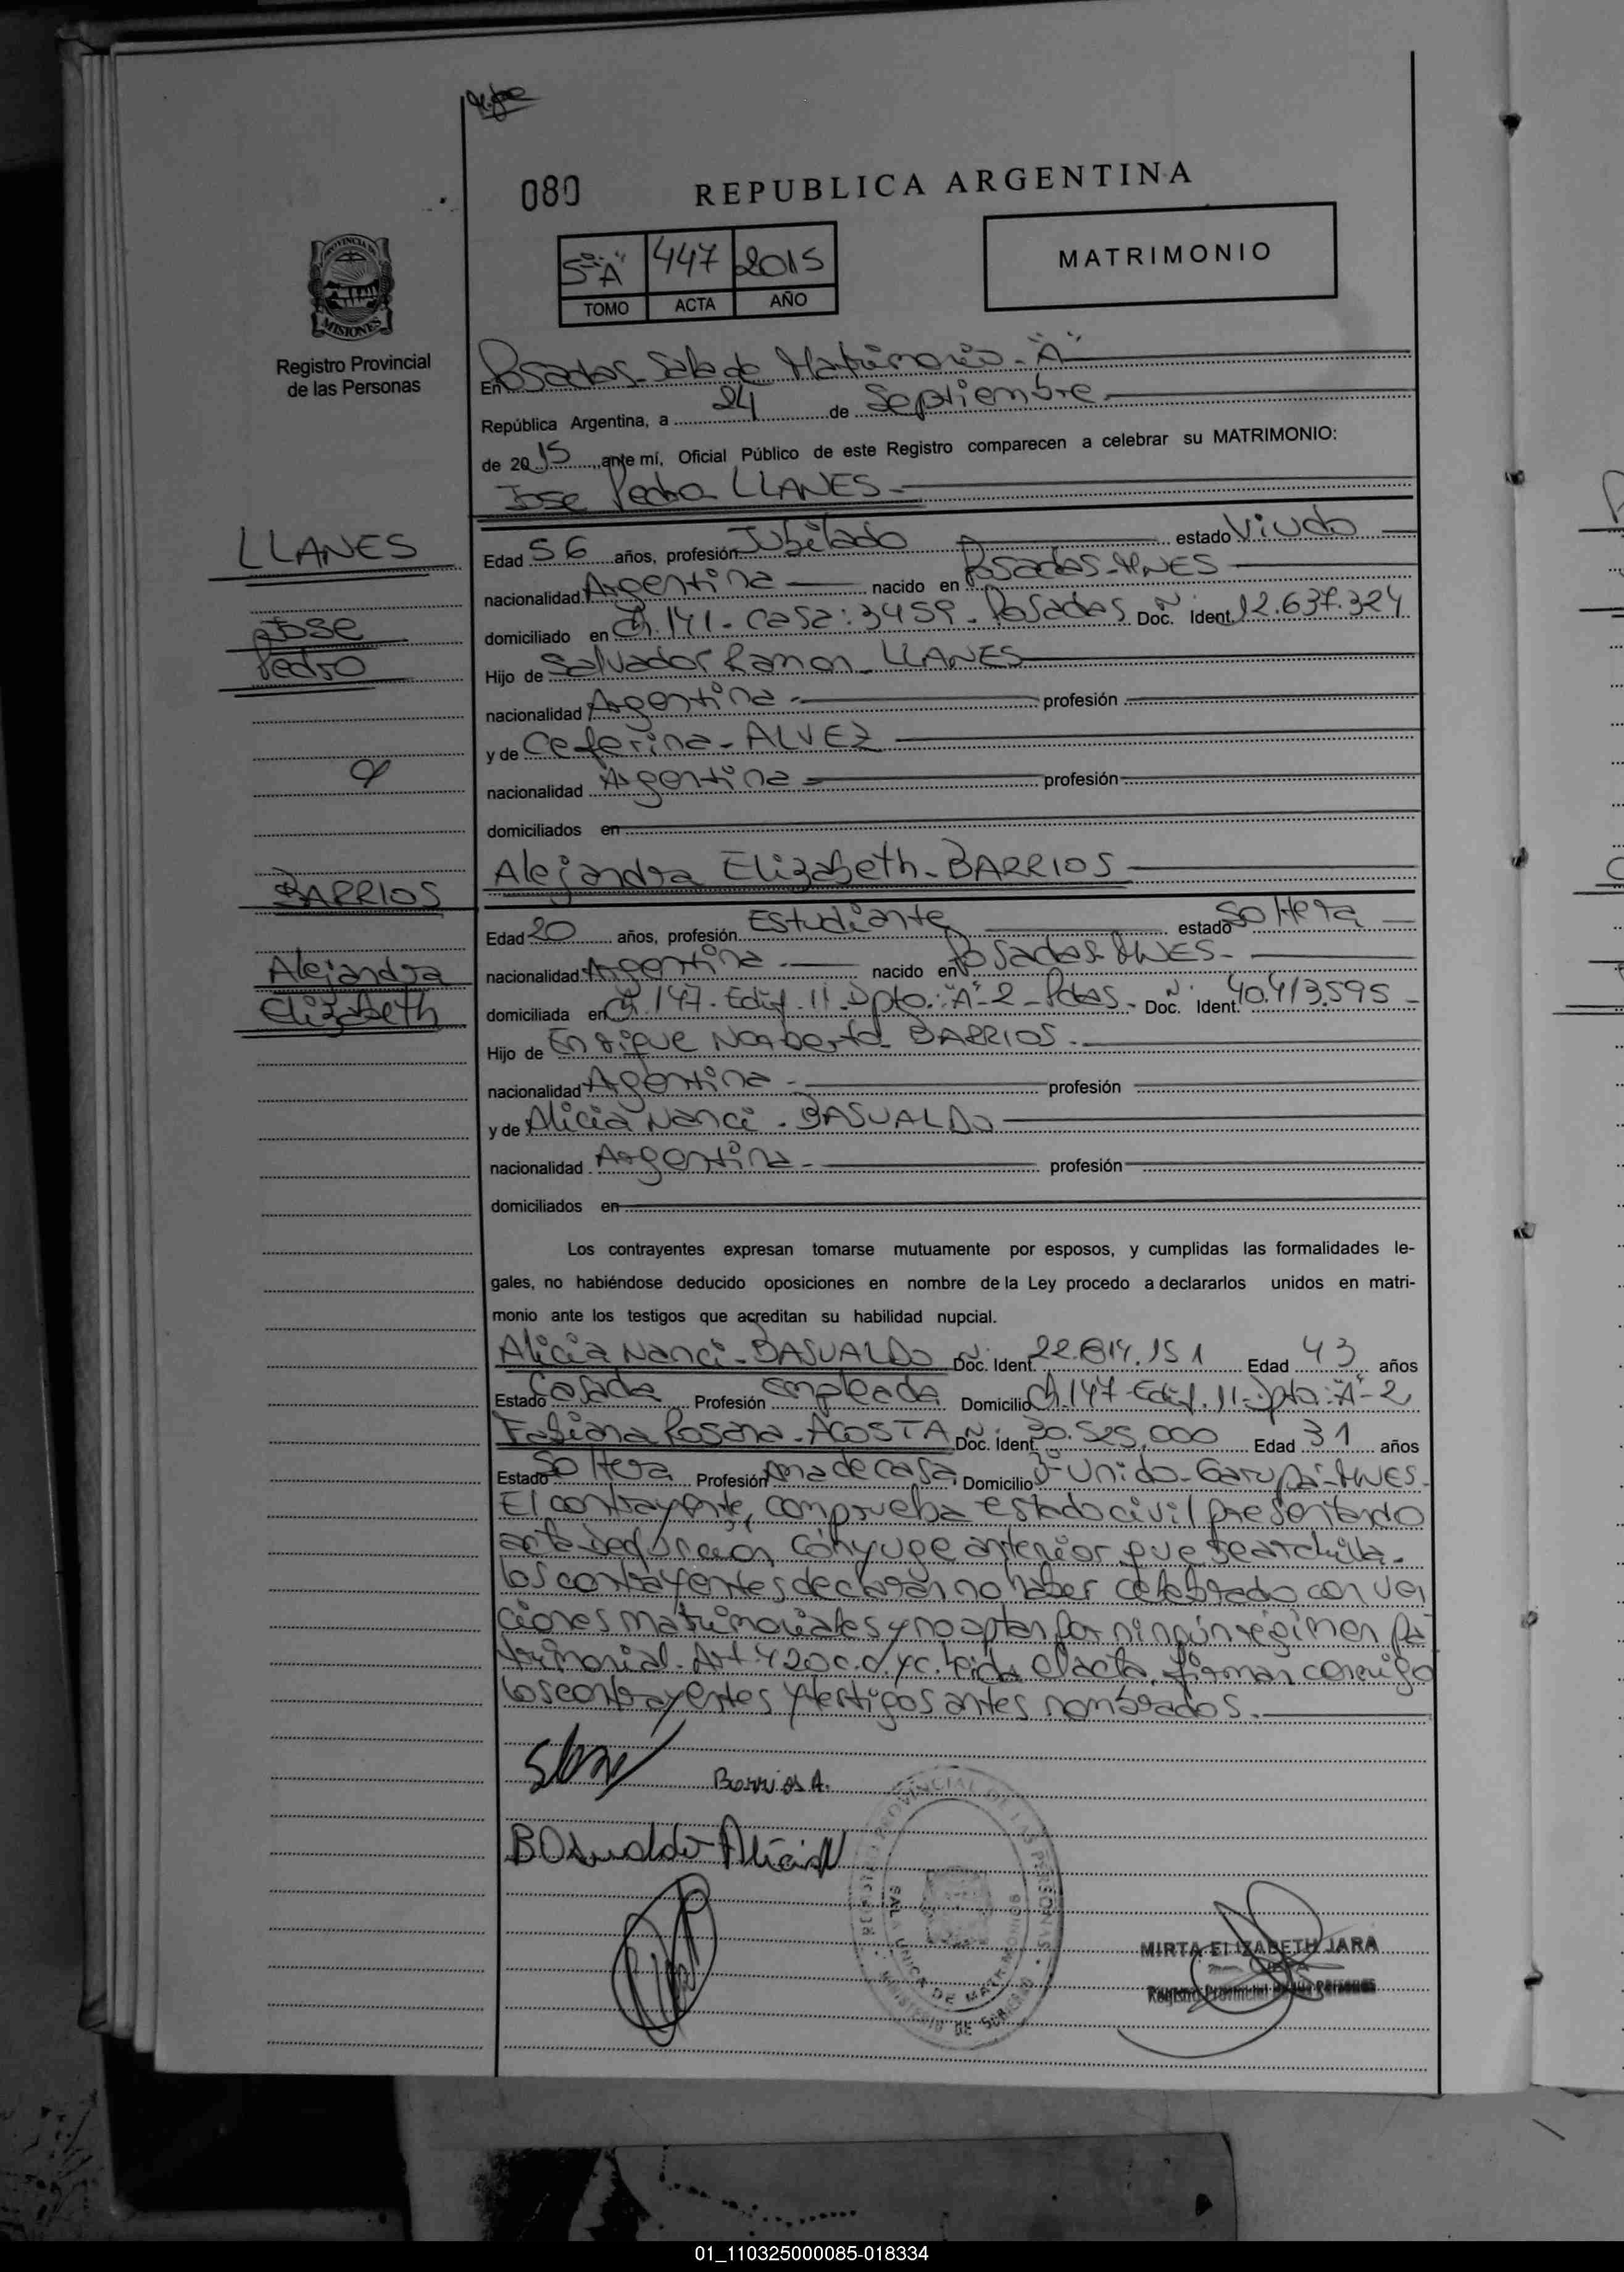 080
REPUBLICA ARGENTINA
5º "A" 447 2015
TOMO ACTA AÑO
MATRIMONIO
PROVINCIA DE
MISIONES
Registro Provincial
de las Personas
En Posadas-Sala de Matrimonio-"A"
República Argentina, a 24 de Septiembre
de 2015 ante mí, Oficial Público de este Registro comparecen a celebrar su MATRIMONIO:
Jose Pedro LLANES
LLANES
Jose
Pedro
Edad 56 años, profesión Jubilado estado Viudo
nacionalidad Argentina nacido en Posadas-MNES
domiciliado en Ch.141-Casa:3459-Posadas Doc. Nº Ident. 12.637.324
Hijo de Salvador Ramon LLANES
nacionalidad Argentina profesión
y de Ceferina-ALVEZ
nacionalidad Argentina profesión
domiciliados en
Alejandra Elizabeth-BARRIOS
BARRIOS
Alejandra
Elizabeth
Edad 20 años, profesión Estudiante estado Soltera
nacionalidad Argentina nacido en Posadas-MNES-
domiciliada en Ch.147-Edif.11-Dpto:"A"-2-Pdas- Doc. Nº Ident. 40.413.595
Hijo de Enrique Norberto BARRIOS
nacionalidad Argentina profesión
y de Alicia Nanci-BASUALDO
nacionalidad Argentina profesión
domiciliados en
Los contrayentes expresan tomarse mutuamente por esposos, y cumplidas las formalidades le-
gales, no habiéndose deducido oposiciones en nombre de la Ley procedo a declararlos unidos en matri-
monio ante los testigos que acreditan su habilidad nupcial.
Alicia Nanci-BASUALDO Doc. Nº Ident. 22.814.151 Edad 43 años
Estado Casada Profesión empleada Domicilio Ch.147-Edif.11-Dpto:"A"-2
Fabiana Rosana-ACOSTA Doc. Nº Ident. 30.525.000 Edad 31 años
Estado Soltera Profesión Ama de casa Domicilio Bº Unido-Garupá-MNES-
El contrayente, comprueba estado civil presentando
acta defuncion cónyuge anterior que se archiva.
los contrayentes declaran no haber celebrado conven
ciones matrimoniales y no optan por ningún régimen pa
trimonial-Art 420 c.c.yc. leida el acta, firman conmigo
los contrayentes y testigos antes nombrados.
Barrios A.
Basualdo Alicia N
REGISTRO PROVINCIAL DE LAS PERSONAS
SALA UNICA DE MATRIMONIOS
MINISTERIO DE GOBIERNO
MIRTA ELIZABETH JARA
Registro Provincial de las Personas
01_110325000085-018334